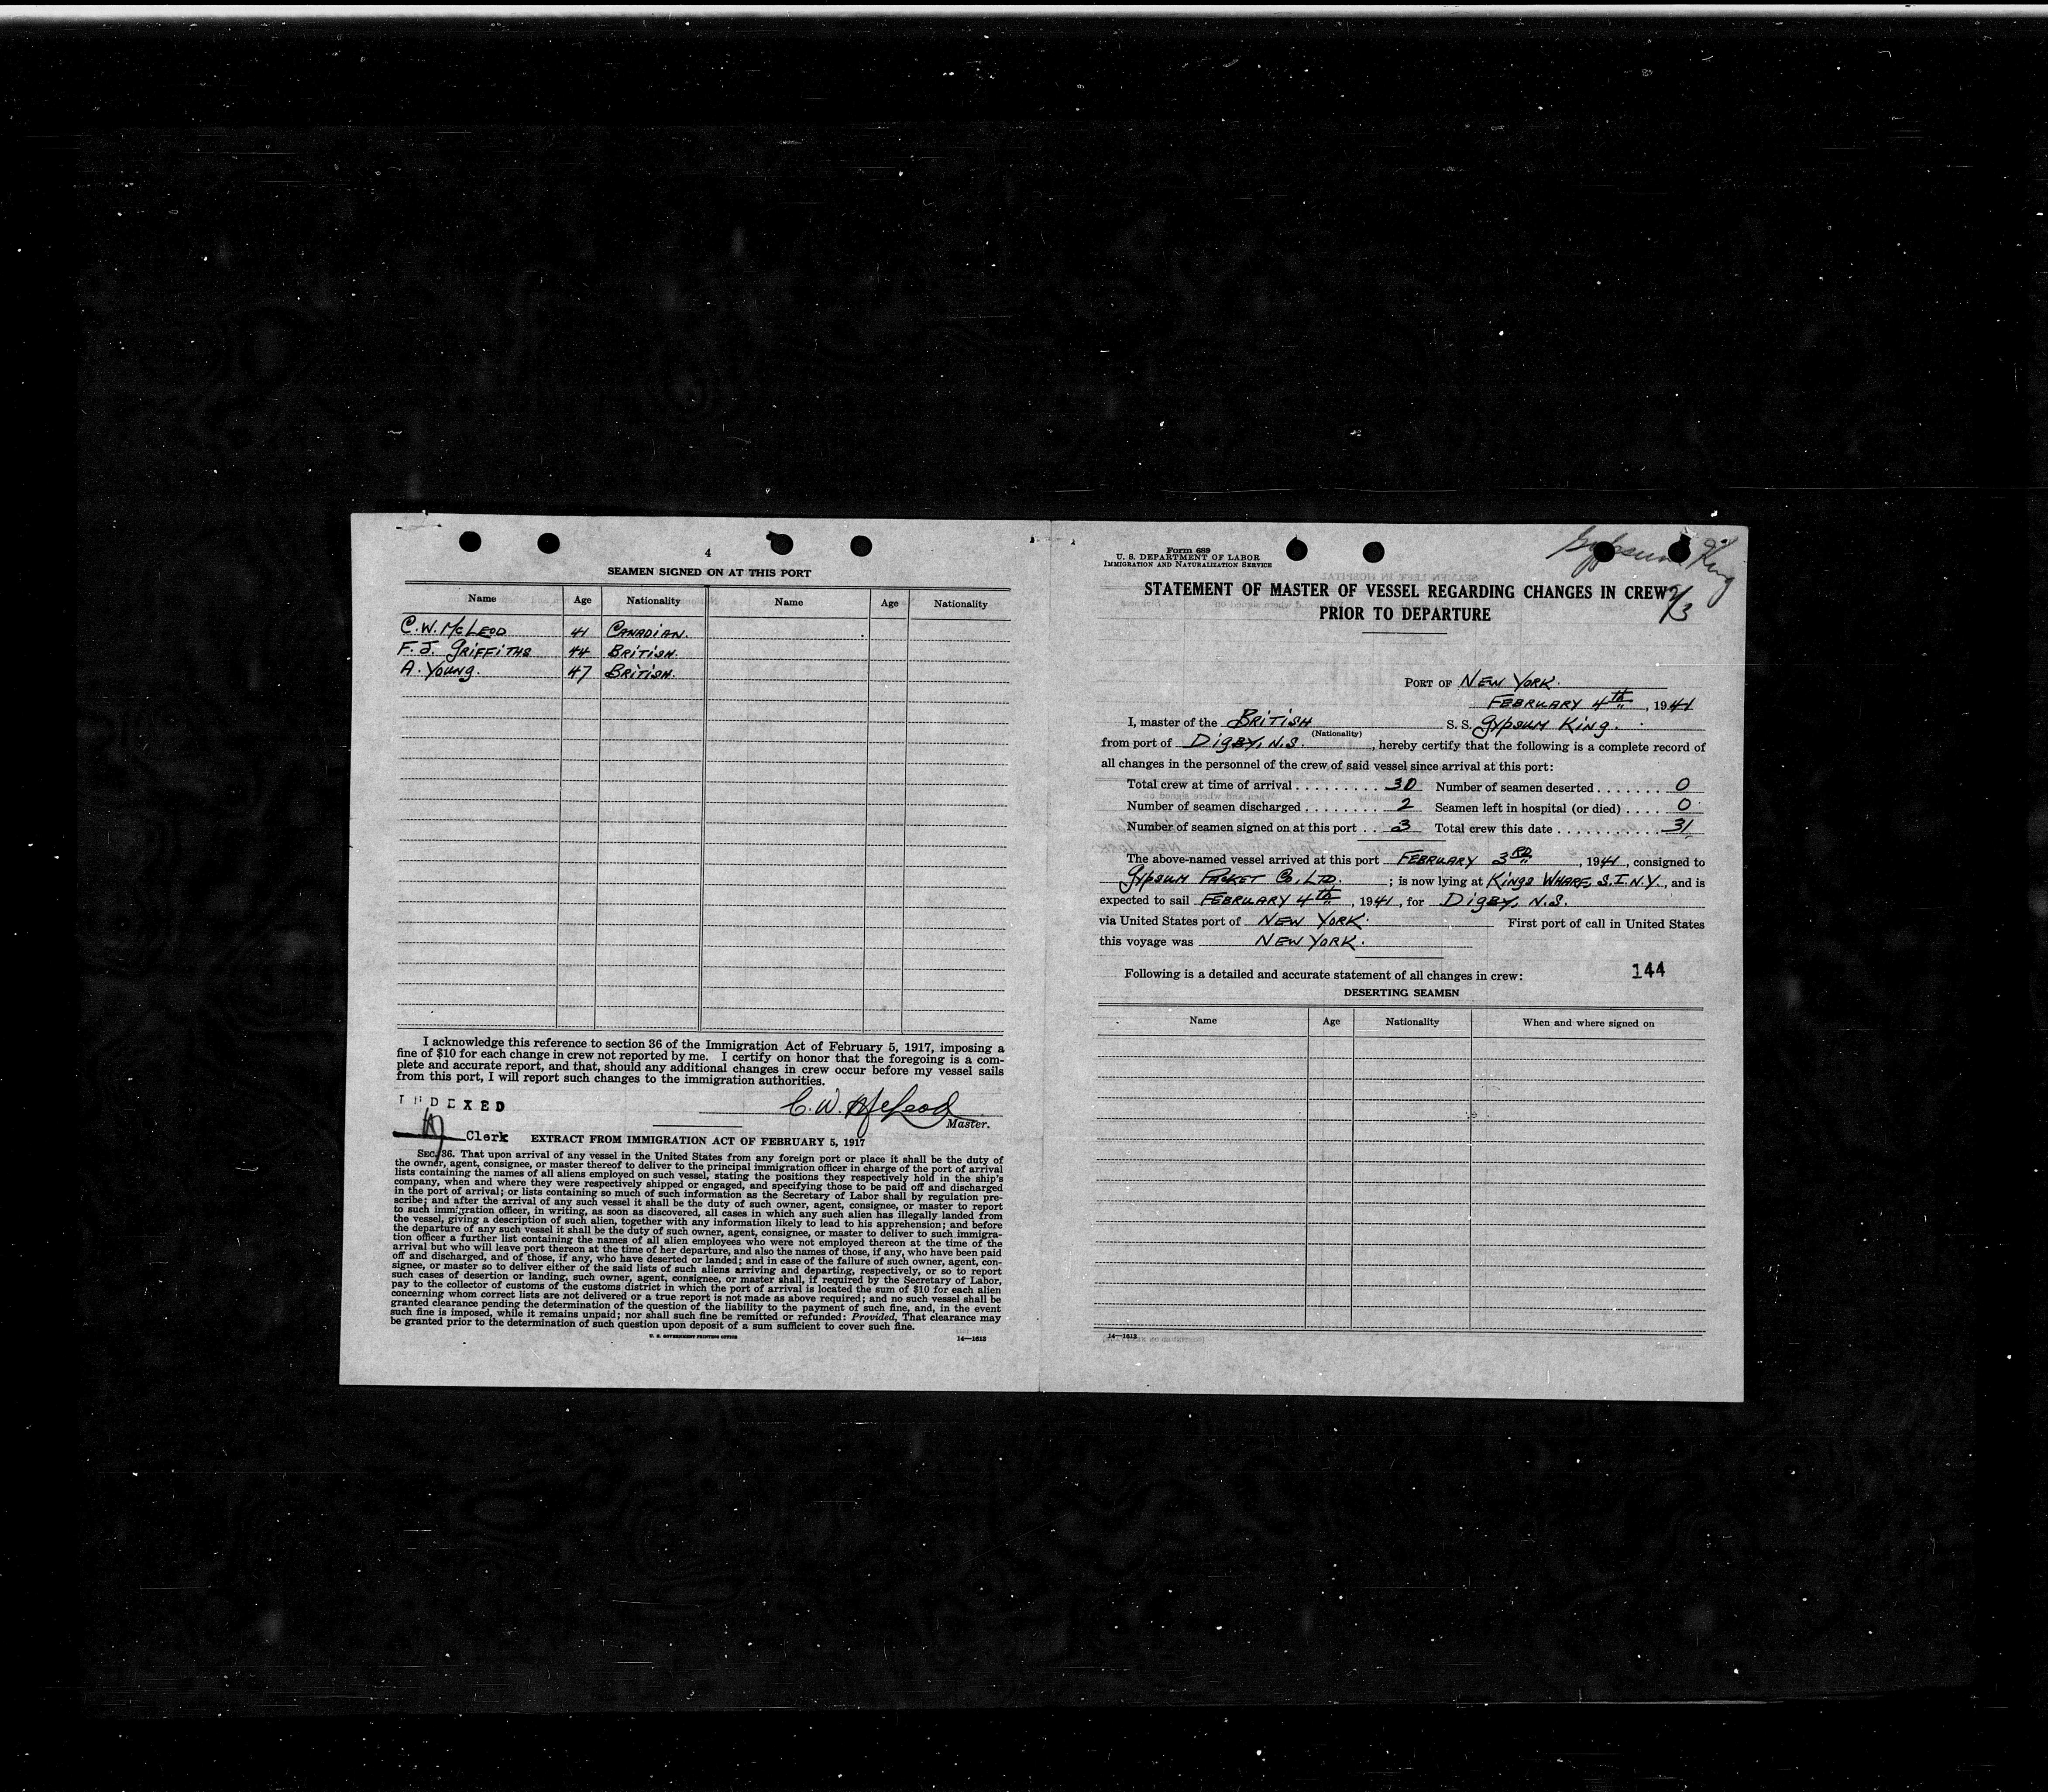 4
SEAMEN SIGNED ON AT THIS PORT
Name Age Nationality Name Age Nationality
C. W. McLEOD 41 CANADIAN.
F. J. GRIFFITHS 44 BRITISH.
A. YOUNG. 47 BRITISH.
I acknowledge this reference to section 36 of the Immigration Act of February 5, 1917, imposing a
fine of $10 for each change in crew not reported by me. I certify on honor that the foregoing is a com-
plete and accurate report, and that, should any additional changes in crew occur before my vessel sails
from this port, I will report such changes to the immigration authorities.
INDEXED
C. W. McLeod
Master.
Clerk
EXTRACT FROM IMMIGRATION ACT OF FEBRUARY 5, 1917
SEC. 36. That upon arrival of any vessel in the United States from any foreign port or place it shall be the duty of
the owner, agent, consignee, or master thereof to deliver to the principal immigration officer in charge of the port of arrival
lists containing the names of all aliens employed on such vessel, stating the positions they respectively hold in the ship's
company, when and where they were respectively shipped or engaged, and specifying those to be paid off and discharged
in the port of arrival; or lists containing so much of such information as the Secretary of Labor shall by regulation pre-
scribe; and after the arrival of any such vessel it shall be the duty of such owner, agent, consignee, or master to report
to such immigration officer, in writing, as soon as discovered, all cases in which any such alien has illegally landed from
the vessel, giving a description of such alien, together with any information likely to lead to his apprehension; and before
the departure of any such vessel it shall be the duty of such owner, agent, consignee, or master to deliver to such immigra-
tion officer a further list containing the names of all alien employees who were not employed thereon at the time of the
arrival but who will leave port thereon at the time of her departure, and also the names of those, if any, who have been paid
off and discharged, and of those, if any, who have deserted or landed; and in case of the failure of such owner, agent, con-
signee, or master so to deliver either of the said lists of such aliens arriving and departing, respectively, or so to report
such cases of desertion or landing, such owner, agent, consignee, or master shall, if required by the Secretary of Labor,
pay to the collector of customs of the customs district in which the port of arrival is located the sum of $10 for each alien
concerning whom correct lists are not delivered or a true report is not made as above required; and no such vessel shall be
granted clearance pending the determination of the question of the liability to the payment of such fine, and, in the event
such fine is imposed, while it remains unpaid; nor shall such fine be remitted or refunded: Provided, That clearance may
be granted prior to the determination of such question upon deposit of a sum sufficient to cover such fine.
U. S. GOVERNMENT PRINTING OFFICE 14—1613
Form 689
U. S. DEPARTMENT OF LABOR
IMMIGRATION AND NATURALIZATION SERVICE
Gypsum King
2/3
STATEMENT OF MASTER OF VESSEL REGARDING CHANGES IN CREW
PRIOR TO DEPARTURE
PORT OF NEW YORK.
FEBRUARY 4th, 1941
I, master of the BRITISH S. S. GYPSUM KING.
(Nationality)
from port of DIGBY, N.S., hereby certify that the following is a complete record of
all changes in the personnel of the crew of said vessel since arrival at this port:
Total crew at time of arrival . . . . . . . . . 30 Number of seamen deserted . . . . . . . 0
Number of seamen discharged . . . . . . . . 2 Seamen left in hospital (or died) . . . . 0
Number of seamen signed on at this port . . 3 Total crew this date . . . . . . . . . . . 31
The above-named vessel arrived at this port FEBRUARY 3RD, 1941, consigned to
GYPSUM PACKET CO. LTD. ; is now lying at KINGS WHARF, S.I. N.Y., and is
expected to sail FEBRUARY 4th, 1941, for DIGBY, N.S.
via United States port of NEW YORK. First port of call in United States
this voyage was NEW YORK.
Following is a detailed and accurate statement of all changes in crew: 144
DESERTING SEAMEN
Name Age Nationality When and where signed on
14—1613